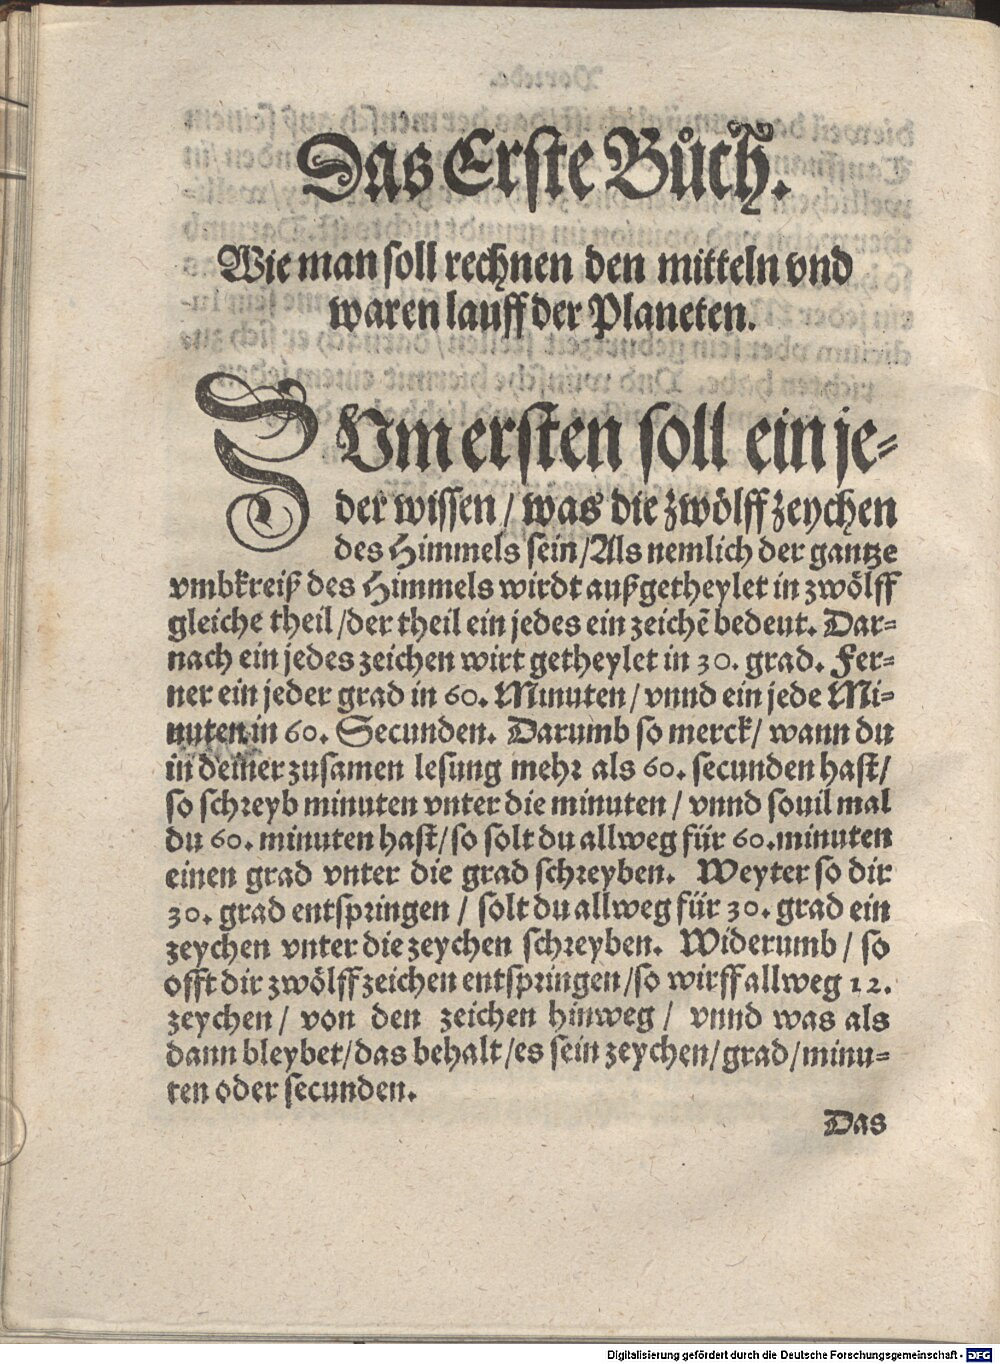 Das Erste Bůch.
Wie man soll rechnen den mitteln vnd
waren lauff der Planeten.
ZVm ersten soll ein je-
der wissen / was die zwölff zeychen
des Himmels sein / Als nemlich der gantze
vmbkreiß des Himmels wirdt außgetheylet in zwölff
gleiche theil / der theil ein jedes ein zeichē bedeut. Dar-
nach ein jedes zeichen wirt getheylet in 30. grad. Fer-
ner ein jeder grad in 60. Minuten / vnnd ein jede Mi-
nuten in 60. Secunden. Darumb so merck / wann du
in deiner zusamen lesung mehr als 60. secunden hast /
so schreyb minuten vnter die minuten / vnnd souil mal
du 60. minuten hast / so solt du allweg für 60. minuten
einen grad vnter die grad schreyben. Weyter so dir
30. grad entspringen / solt du allweg für 30. grad ein
zeychen vnter die zeychen schreyben. Widerumb / so
offt dir zwölff zeichen entspringen / so wirff allweg 12.
zeychen / von den zeichen hinweg / vnnd was als
dann bleybet / das behalt / es sein zeychen / grad / minu-
ten oder secunden.
Das
Digitalisierung gefördert durch die Deutsche Forschungsgemeinschaft - DFG